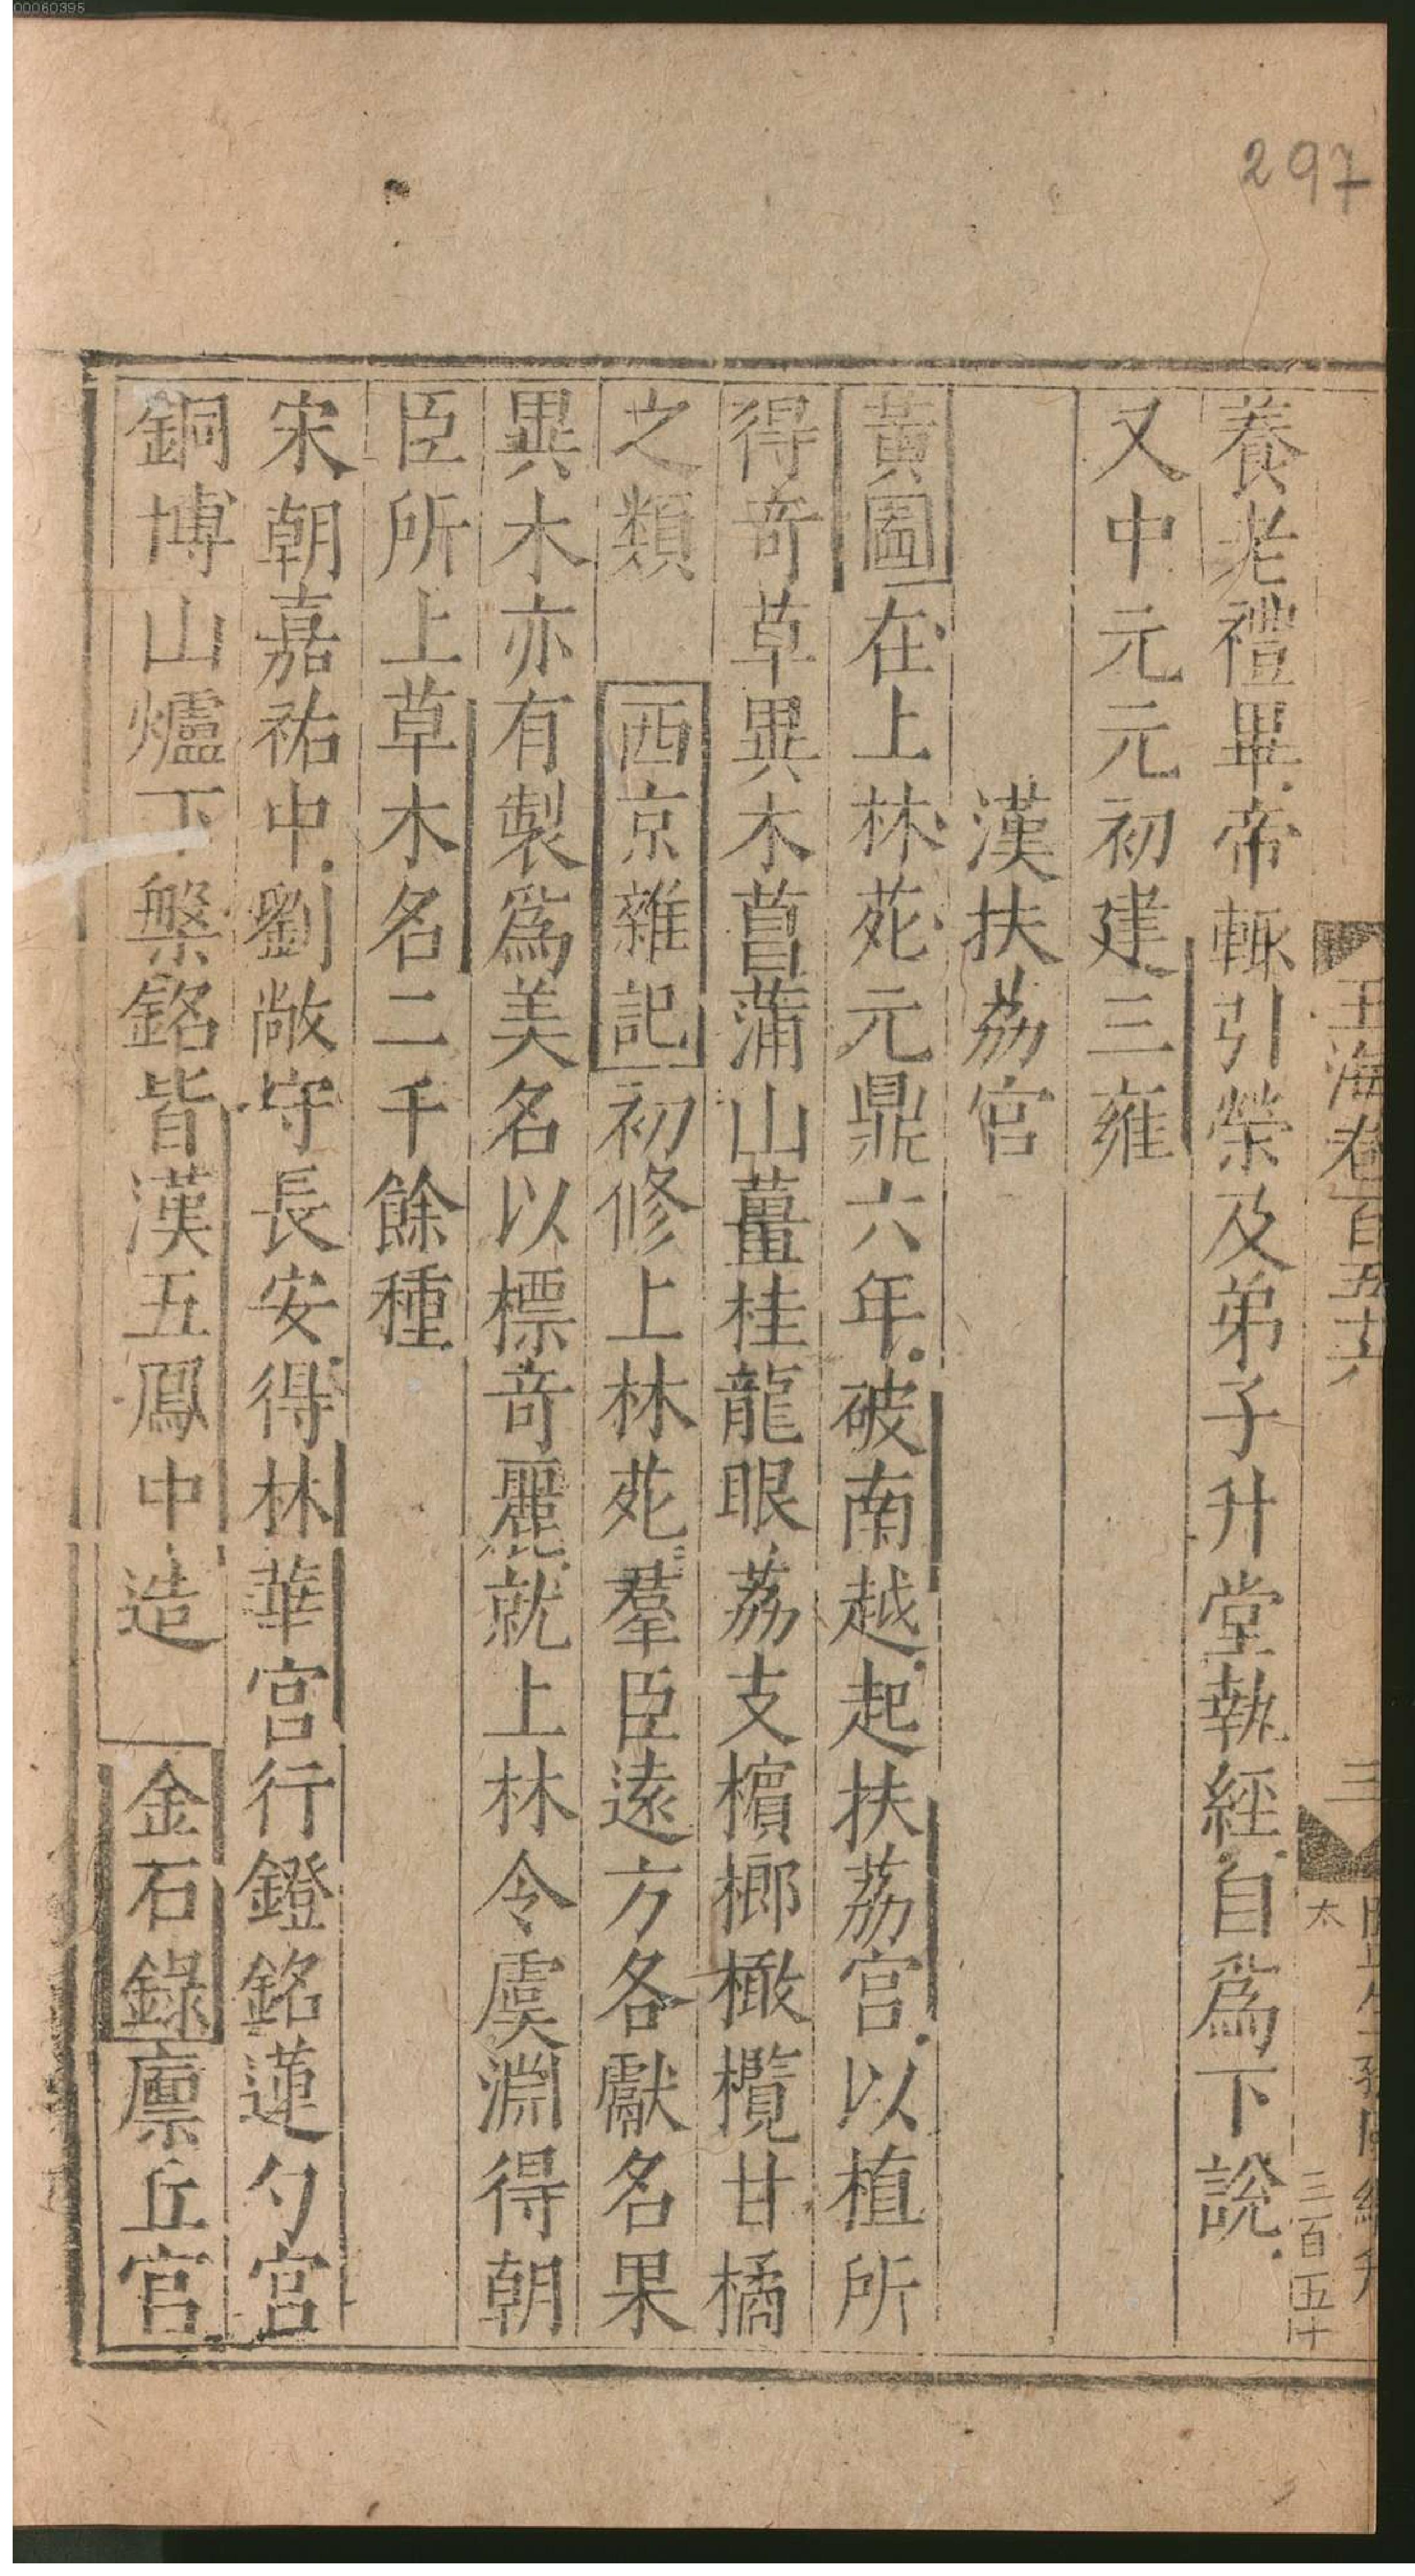 00060395
297
玉海卷百五十八
三
太
三百五十
養老禮畢帝輒引榮及弟子升堂執經自爲下說
又中元元初建三雍
漢扶荔宮
黃圖在上林苑元鼎六年破南越起扶荔宮以植所
得奇草異木菖蒲山薑桂龍眼荔支檳榔橄欖甘橘
之類 西京雜記初修上林苑羣臣遠方各獻名果
異木亦有製爲美名以標奇麗就上林令虞淵得朝
臣所上草木名二千餘種
宋朝嘉祐中劉敞守長安得林華宮行鐙銘蓮勺宮
銅博山爐下槃銘皆漢五鳳中造 金石錄廩丘宮